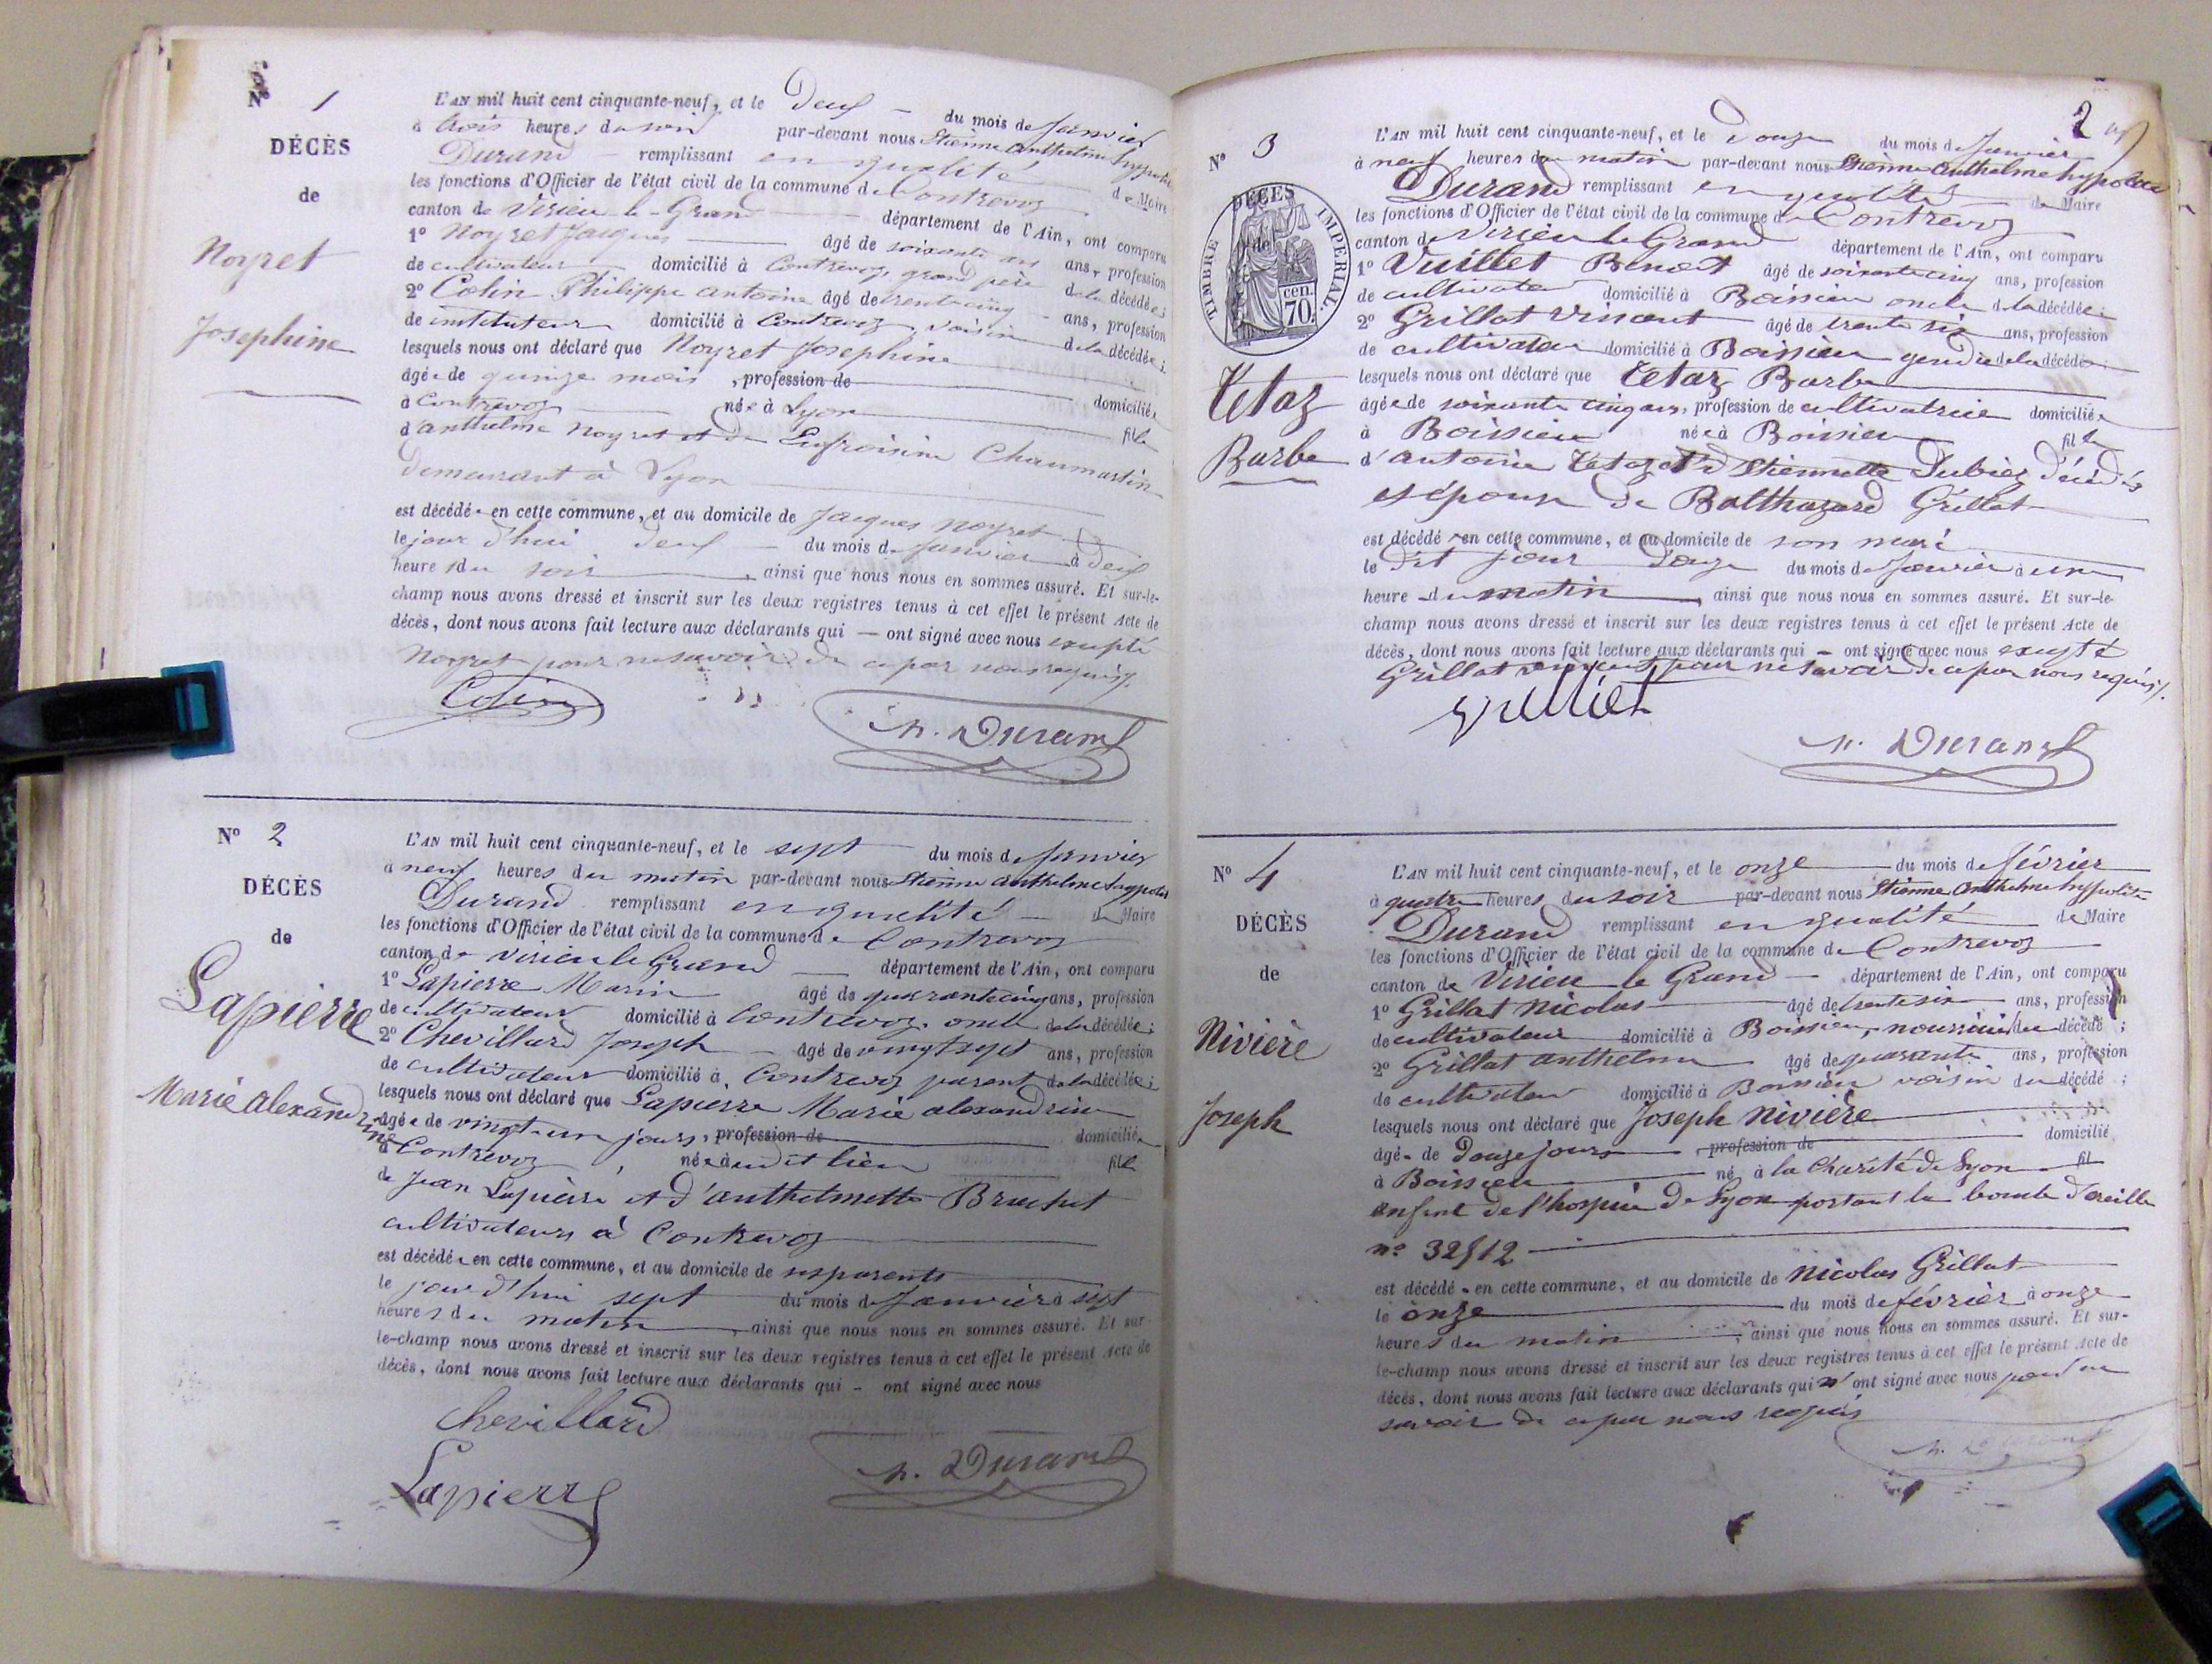 Nº 1
DÉCÈS
de
Noyret
Josephine
L'AN mil huit cent cinquante-neuf, et le Deux du mois de Janvier
à trois heures du soir par-devant nous Etienne Anthelme hyppolite
Durand remplissant en qualité de Maire
les fonctions d'Officier de l'état civil de la commune de Contrevoz
canton de Virieu le-Grand département de l'Ain, ont comparu
1º Noyret Jacques âgé de soixante ans ans, profession
de cultivateur domicilié à Contrevoz grand père de la décédée;
2º Colin Philippe antoine âgé de trente cinq ans, profession
de instituteur domicilié à Contrevoz, voisin de la décédée;
lesquels nous ont déclaré que Noyret Josephine
âgée de quinze mois, profession de domiciliée
à Contrevoz née à Lyon fille
d'anthelme Noyret et de Eufroisine Chaumartin
demeurant à Lyon
est décédée en cette commune, et au domicile de Jacques Noyret
le jour d'hui deux du mois de Janvier à deux
heures du soir, ainsi que nous nous en sommes assuré. Et sur-le-
champ nous avons dressé et inscrit sur les deux registres tenus à cet effet le présent Acte de
décès, dont nous avons fait lecture aux déclarants qui — ont signé avec nous excepté
Noyret pour ne savoir de ce par nous requis
Colin
h. Durand
Nº 2
DÉCÈS
de
Lapierre
Marie alexandrine
L'AN mil huit cent cinquante-neuf, et le sept du mois de Janvier
à neuf heures du matin par-devant nous Etienne Anthelme hyppolite
Durand remplissant en qualité de Maire
les fonctions d'Officier de l'état civil de la commune de Contrevoz
canton de Virieu le Grand département de l'Ain, ont comparu
1º Lapierre Marin âgé de quarante cinq ans, profession
de cultivateur domicilié à Contrevoz. oncle de la décédée;
2º Chevillard Joseph âgé de vingt sept ans, profession
de cultivateur domicilié à Contrevoz parent de la décédée;
lesquels nous ont déclaré que Lapierre Marie alexandrine
âgée de vingt-un jours, profession de domiciliée
à Contrevoz, née audit lieu fille
de Jean Lapierre et d'anthelmette Brachet
cultivateurs à Contrevoz
est décédée en cette commune, et au domicile de ses parents
le jour d'hui sept du mois de Janvier à sept
heures du matin, ainsi que nous nous en sommes assuré. Et sur-
le-champ nous avons dressé et inscrit sur les deux registres tenus à cet effet le présent Acte de
décès, dont nous avons fait lecture aux déclarants qui - ont signé avec nous
Chevillard
Lapierre
h. Durand
2
Nº 3
TIMBRE IMPÉRIAL.
DÉCÈS
de
70 cen.
Tetaz
Barbe
L'AN mil huit cent cinquante-neuf, et le Douze du mois de Janvier
à neuf heures du matin par-devant nous Etienne Anthelme hyppolite
Durand remplissant en qualité de Maire
les fonctions d'Officier de l'état civil de la commune de Contrevoz
canton de Virieu le Grand département de l'Ain, ont comparu
1º Vuillet Benoit âgé de soixante cinq ans, profession
de cultivateur domicilié à Boissieu oncle de la décédée;
2º Grillat Vincent âgé de trente six ans, profession
de cultivateur domicilié à Boissieu gendre de la décédée;
lesquels nous ont déclaré que Tetaz Barbe
âgée de soixante cinq ans, profession de cultivatrice domiciliée
à Boissieu née à Boissieu fille
d'antoine Tetaz et d'Etiennette Dubiez décédés
et épouse de Balthazard Grillat
est décédée en cette commune, et au domicile de son mari
le dit jour Douze du mois de Janvier à une
heure du matin, ainsi que nous nous en sommes assuré. Et sur-le-
champ nous avons dressé et inscrit sur les deux registres tenus à cet effet le présent Acte de
décès, dont nous avons fait lecture aux déclarants qui - ont signé avec nous excepté
Grillat vincent pour ne savoir de ce par nous requis
Vuillet
h. Durand
Nº 4
DÉCÈS
de
Nivière
Joseph
L'AN mil huit cent cinquante-neuf, et le onze du mois de février
à quatre heures du soir par-devant nous Etienne Anthelme hyppolite
Durand remplissant en qualité de Maire
les fonctions d'Officier de l'état civil de la commune de Contrevoz
canton de Virieu le Grand département de l'Ain, ont comparu
1º Grillat Nicolas âgé de trente six ans, profession
de cultivateur domicilié à Boissieu, nourricier du décédé;
2º Grillat anthelme âgé de quarante ans, profession
de cultivateur domicilié à Boissieu voisin du décédé;
lesquels nous ont déclaré que Joseph Nivière
âgé de Douze jours, profession de domicilié
à Boissieu né à la Charité de Lyon fil
enfant de l'hospice de Lyon portant la boucle d'oreille
nº 32512
est décédé en cette commune, et au domicile de Nicolas Grillat
le onze du mois de février à onze
heures du matin, ainsi que nous nous en sommes assuré. Et sur-
le-champ nous avons dressé et inscrit sur les deux registres tenus à cet effet le présent Acte de
décès, dont nous avons fait lecture aux déclarants qui n'ont signé avec nous pour ne
savoir de ce par nous requis
h. Durand